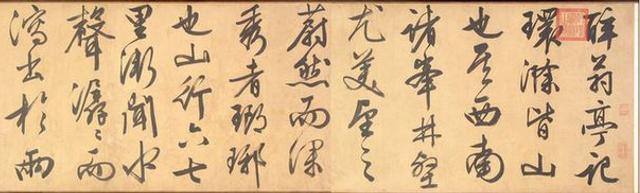 醉翁亭記
環滁皆山
也其西南
諸峯林壑
尤美望之
蔚然而深
秀者瑯琊
也山行六七
里漸聞水
聲潺〻而
瀉出於兩